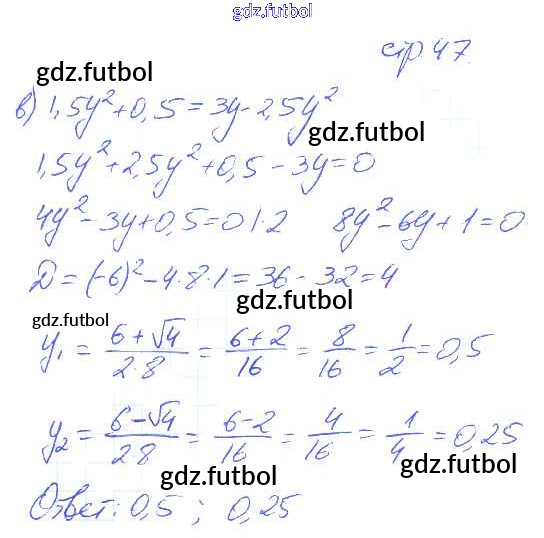 gdz.futbol
стр 47.
gdz.futbol
в) 1,5y²+0,5=3y-2,5y²
gdz.futbol
1,5y²+2,5y²+0,5-3y=0
4y²-3y+0,5=0 |·2 8y²-6y+1=0
gdz.futbol
D=(-6)²-4·8·1=36-32=4
gdz.futbol
gdz.futbol
y₁ = (6+√4)/(2·8) = (6+2)/16 = 8/16 = 1/2 = 0,5
y₂ = (6-√4)/(2·8) = (6-2)/16 = 4/16 = 1/4 = 0,25
gdz.futbol
gdz.futbol
Ответ: 0,5 ; 0,25